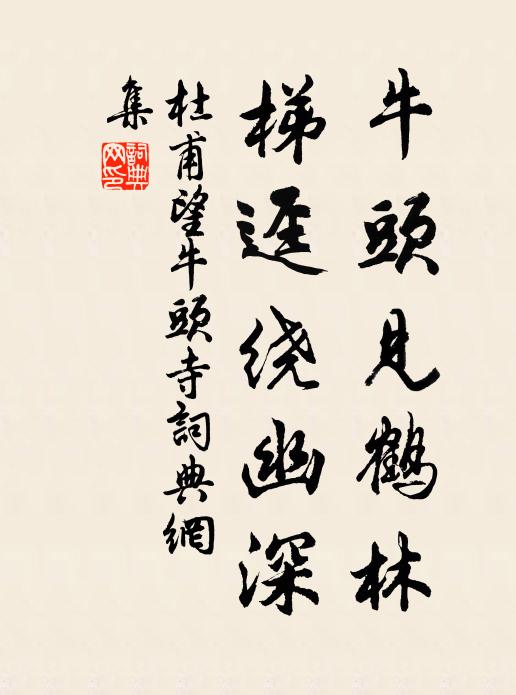 牛頭見鶴林
梯迳绕幽深
杜甫望牛頭寺詞典網
集
詞典
网印